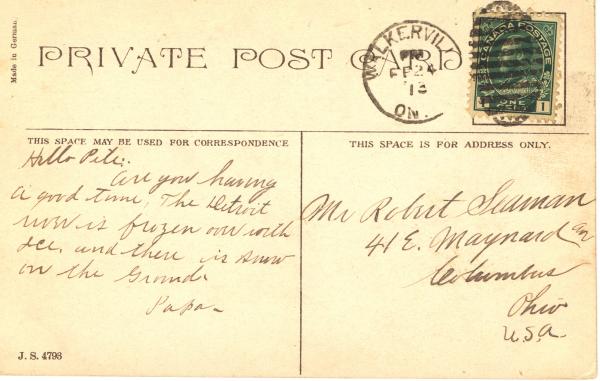 Made in Germany.
PRIVATE POST CARD
WALKERVILLE
PM
FE 24
13
ON.
CANADA POSTAGE
ONE CENT
1
THIS SPACE MAY BE USED FOR CORRESPONDENCE
THIS SPACE IS FOR ADDRESS ONLY.
Hello Pete:
Are you having
a good time, The Detroit
river is frozen over with
Ice, and there is snow
on the Ground.
Papa-
Mr Robert Seaman
41 E. Maynard av
Columbus
Ohio
U.S.a.
J. S. 4798